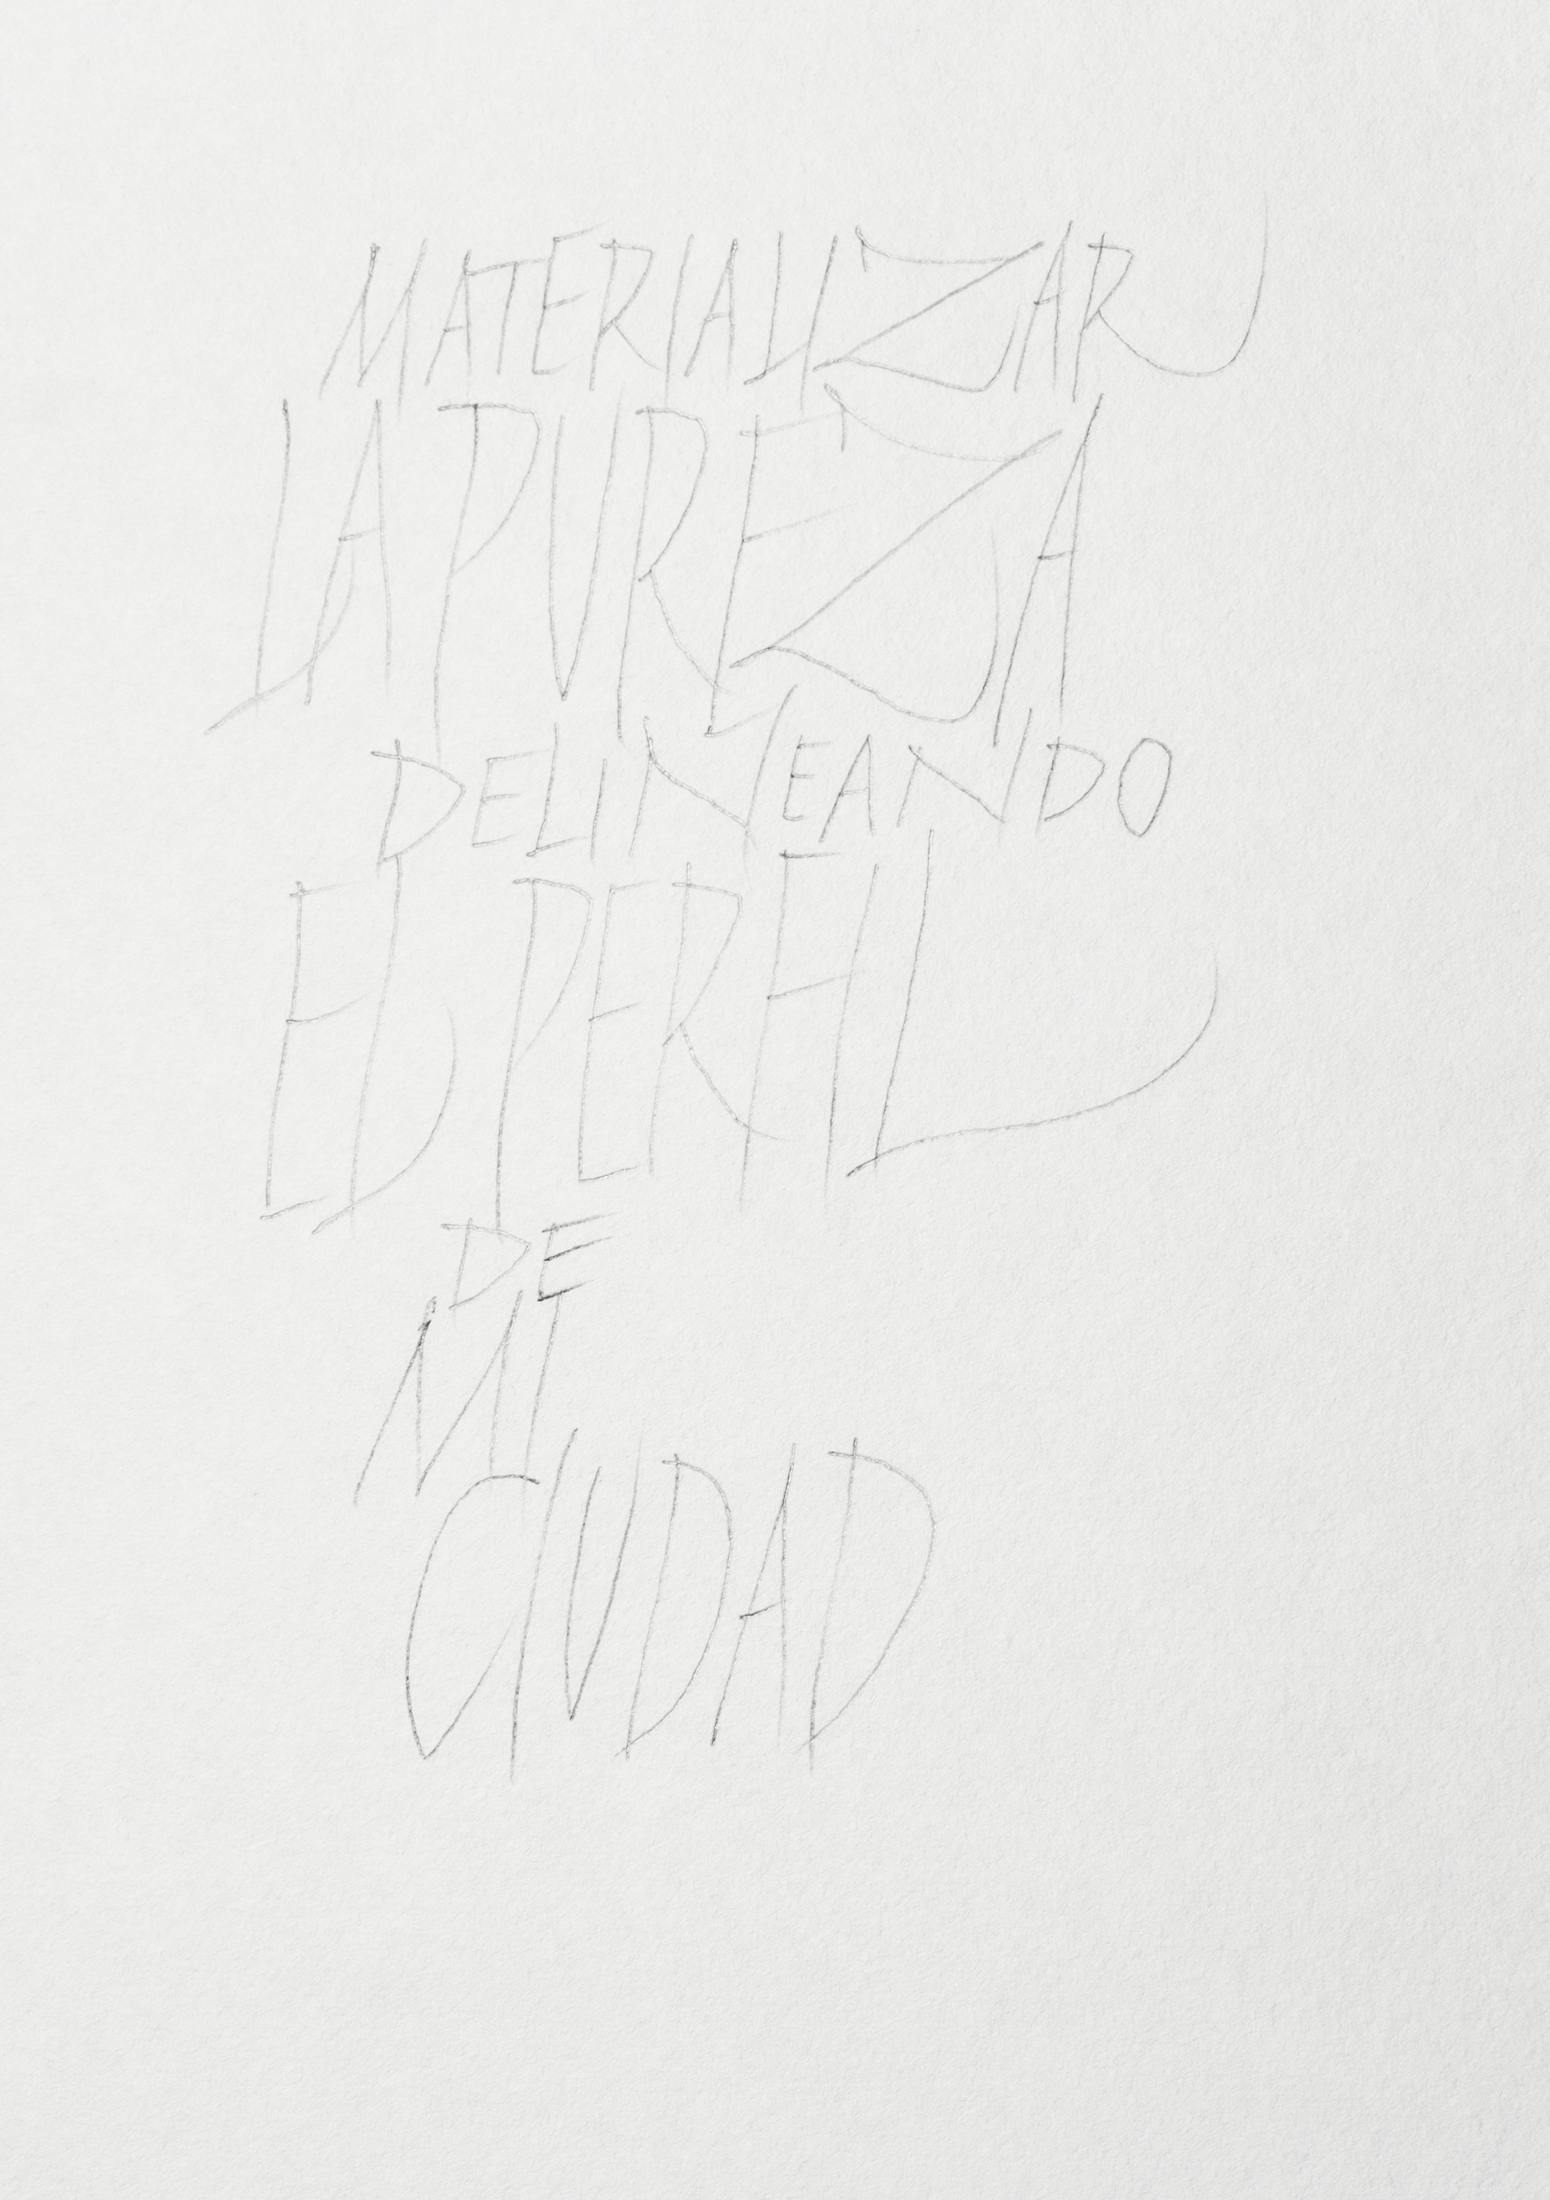 MATERIALIZAR
LA PUREZA
DELINEANDO
EL PERFIL
DE
MI
CIUDAD